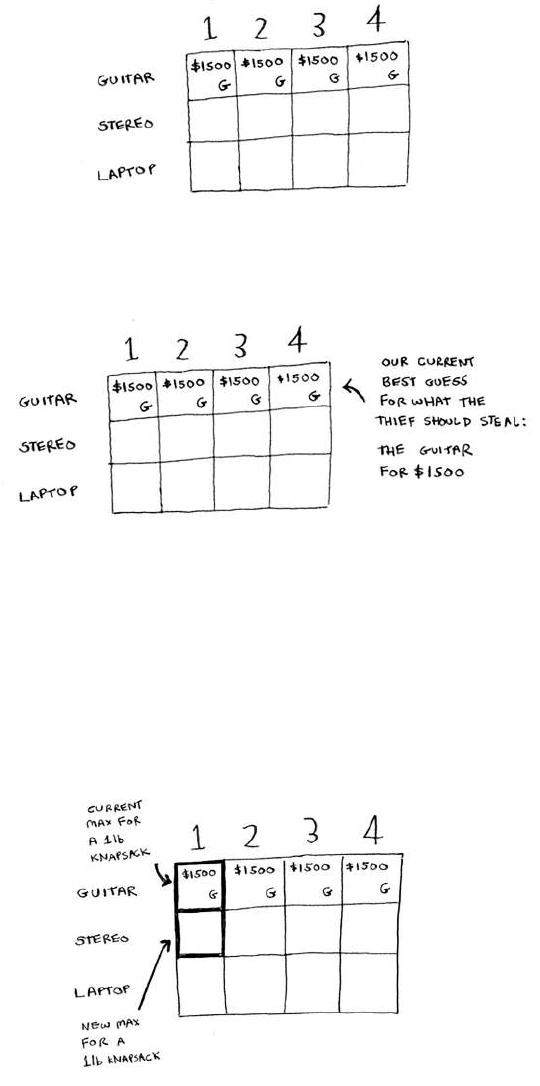 1 2 3 4
GUITAR $1500 $1500 $1500 $1500
G G G G
STEREO
LAPTOP
1 2 3 4
GUITAR $1500 $1500 $1500 $1500
G G G G
STEREO
LAPTOP
OUR CURRENT
BEST GUESS
FOR WHAT THE
THIEF SHOULD STEAL:
THE GUITAR
FOR $1500
CURRENT
MAX FOR
A 1lb
KNAPSACK
1 2 3 4
GUITAR $1500 $1500 $1500 $1500
G G G G
STEREO
LAPTOP
NEW MAX
FOR A
1lb KNAPSACK